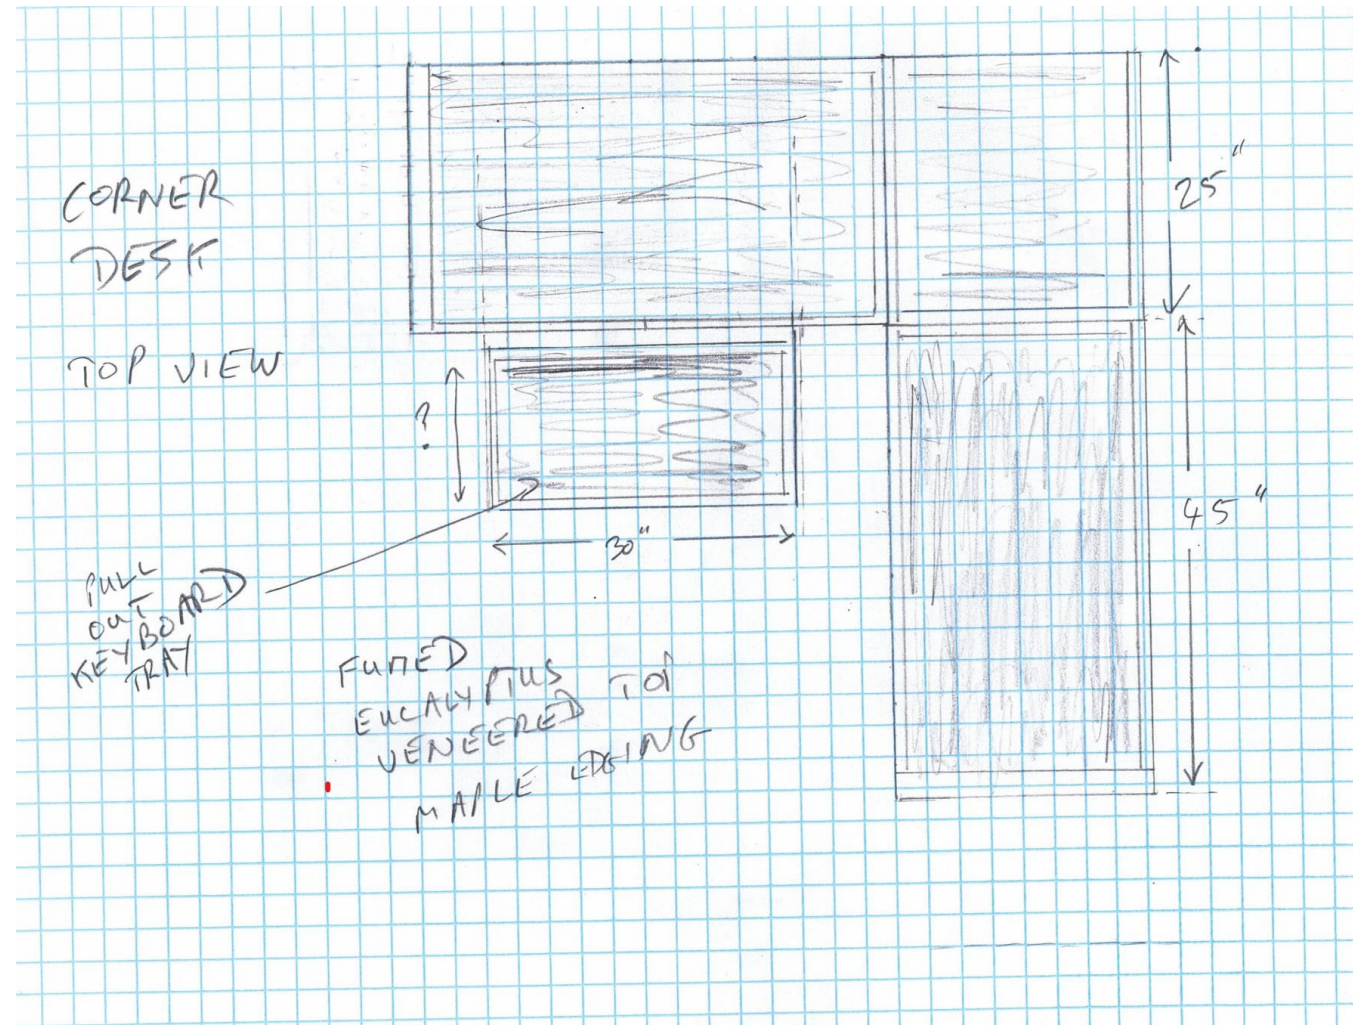 CORNER
DESK
25"
TOP VIEW
?
45"
30"
PULL
OUT
KEYBOARD
TRAY
FUMED
EUCALYPTUS
VENEERED TOP
MAPLE EDGING